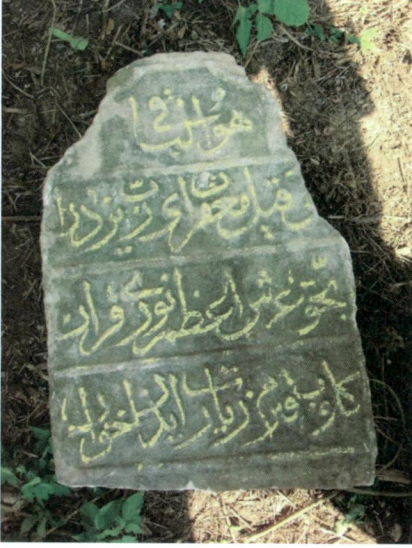 هو الباقی
قیل مغفرت ای رب یزدا
بحق عرش اعظم نوری قران
کلوب قبرم زیارت ایدن اخوان